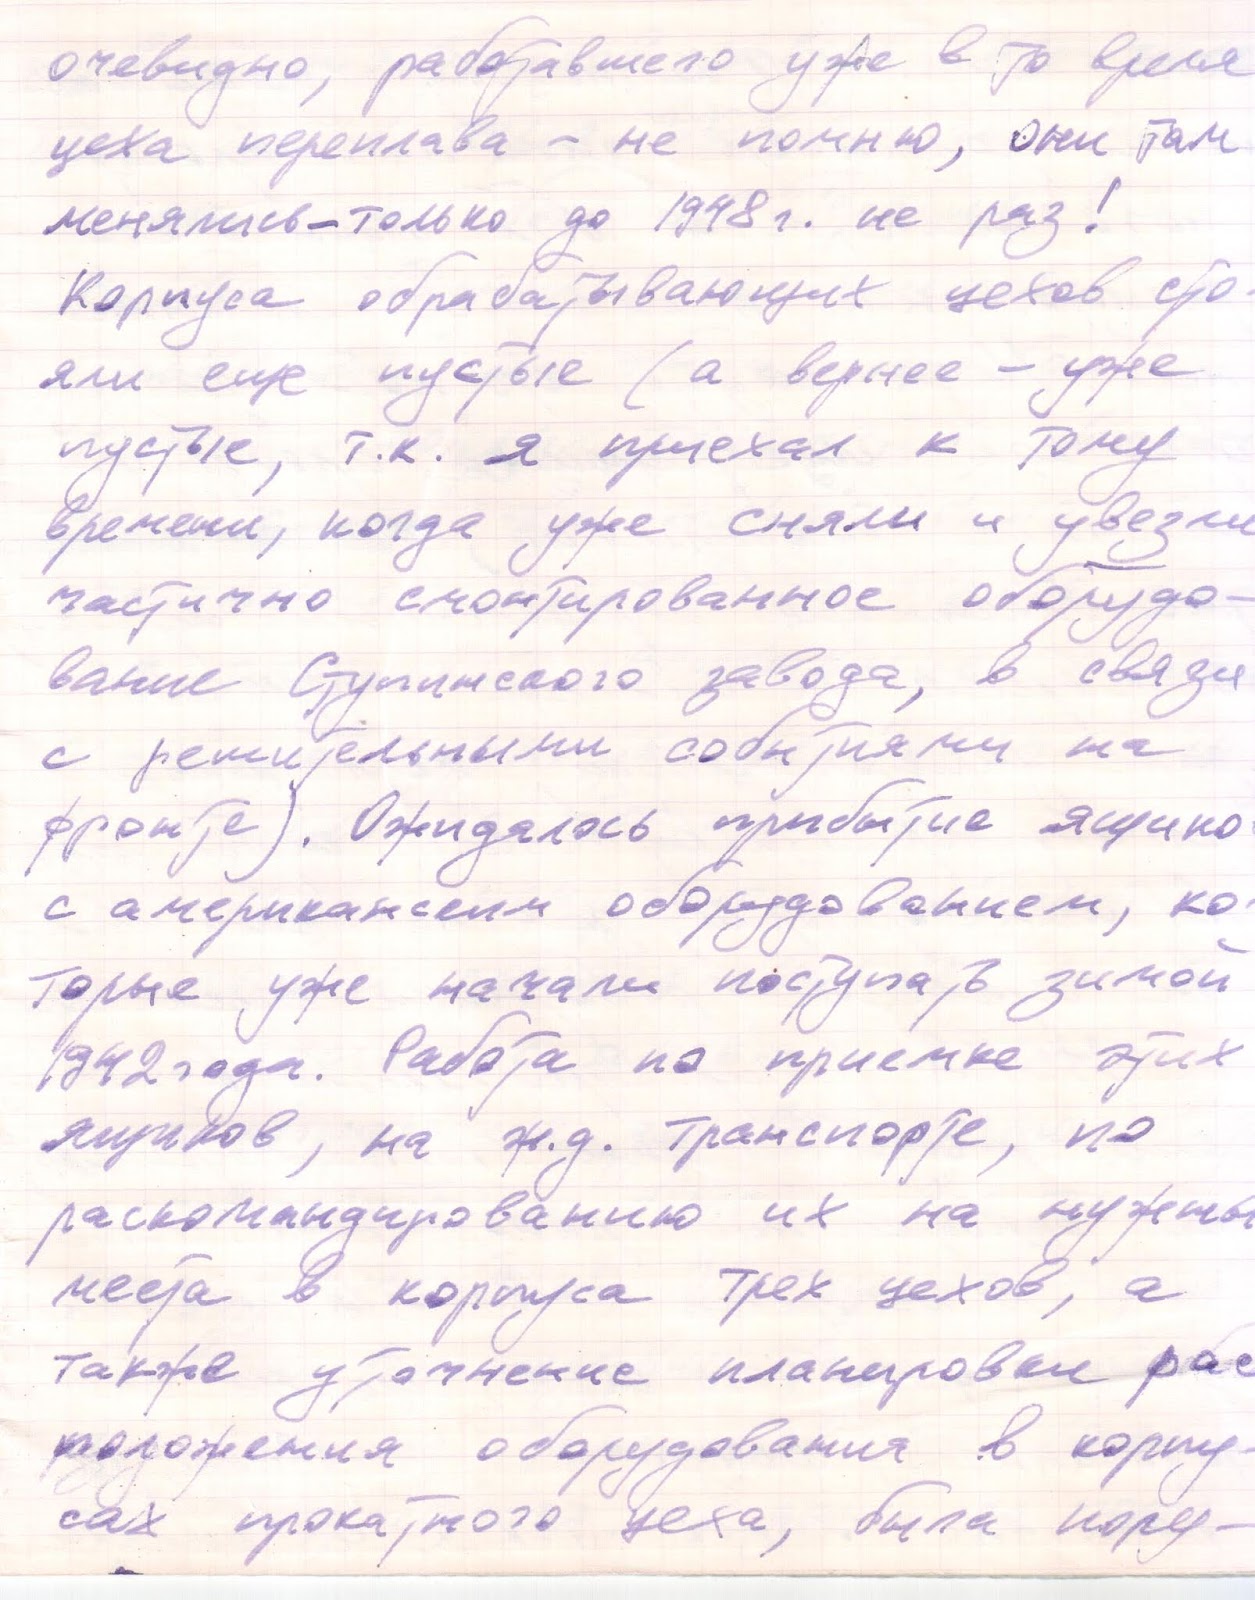 очевидно, работавшего уже в то время
цеха переплава – не помню, они там
менялись – только до 1948 г. не раз!
Корпуса обрабатывающих цехов сто-
яли еще пустые (а вернее – уже
пустые, т.к. я приехал к тому
времени, когда уже сняли и увезли
частично смонтированное оборудо-
вание Ступинского завода, в связи
с решительными событиями на
фронте). Ожидалось прибытие ящико
с американским оборудованием, ко-
торые уже начали поступать зимой
1942 года. Работа по приемке этих
ящиков, на ж.д. транспорте, по
раскомандированию их на нужны
места в корпуса трех цехов, а
также уточнение планировки рас
положения оборудования в корпу-
сах прокатного цеха, была пору-